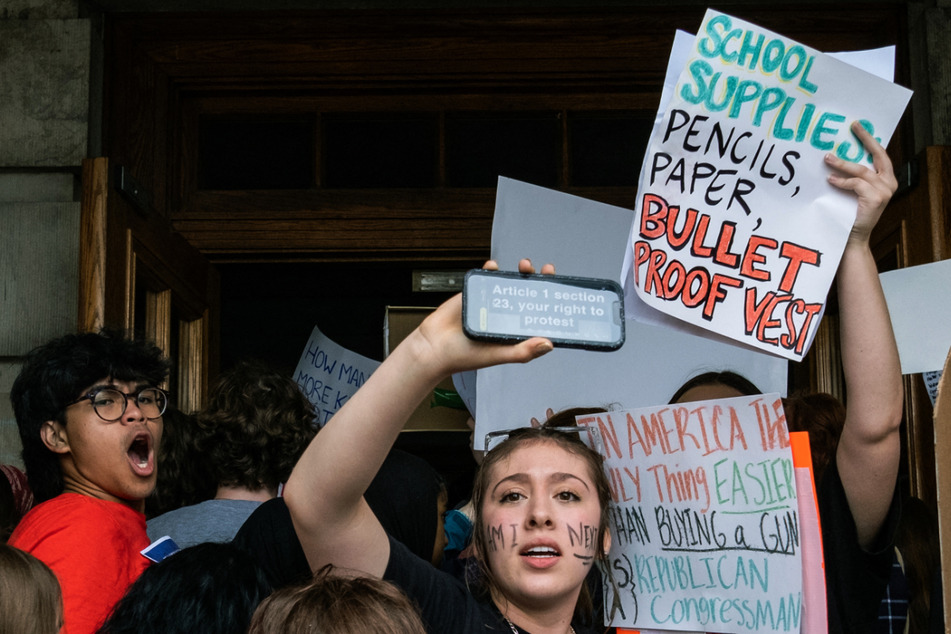 SCHOOL
SUPPLIES:
PENCILS,
PAPER,
BULLET
PROOF
VEST
Article 1 section
23, your right to
protest
HOW MANY
MORE
IN AMERICA THE
ONLY Thing EASIER
THAN BUYING a GUN
IS REPUBLICAN
CongressMAN
AM I NEXT